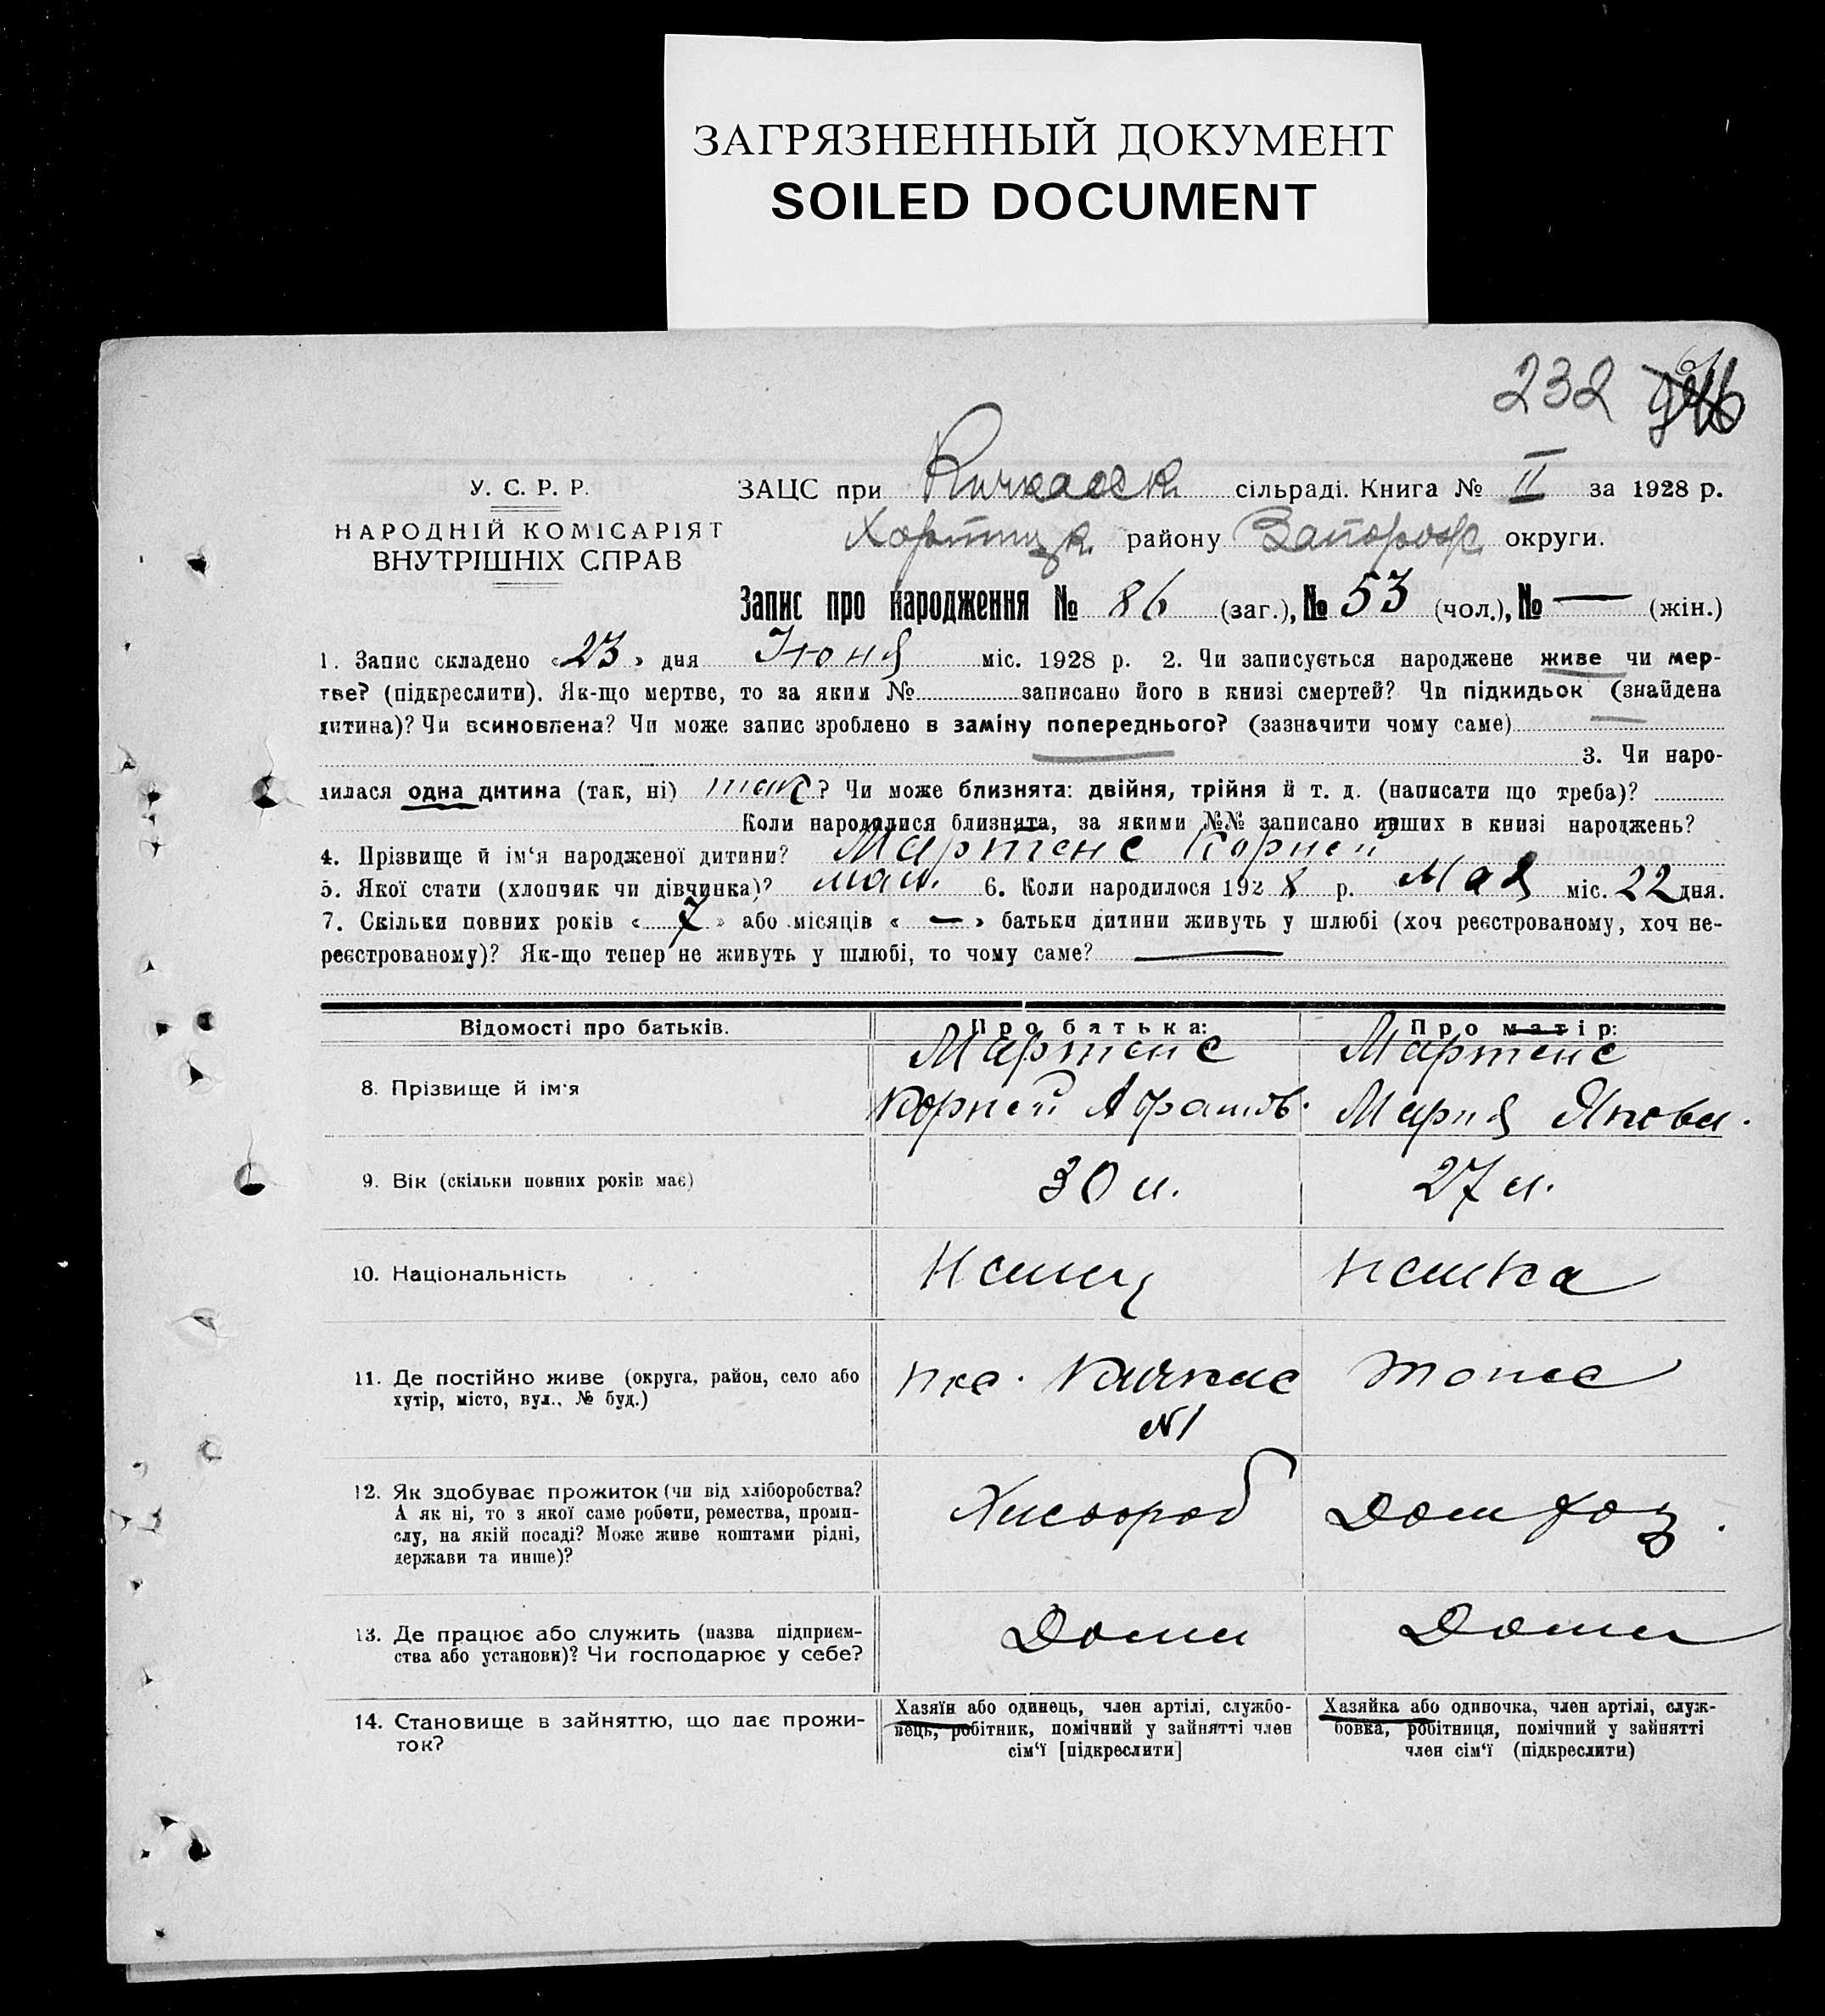 ЗАГРЯЗНЕННЫЙ ДОКУМЕНТ
SOILED DOCUMENT
232
У. С. Р. Р.
НАРОДНІЙ КОМІСАРІЯТ
ВНУТРІШНІХ СПРАВ
ЗАЦС при Кичкасск. сільраді. Книга № II за 1928 р.
Хортицк. району Запорож. округи.
Запис про народження № 86 (заг.), № 53 (чол.), № — (жін.)
1. Запис складено «23» дня Июня міс. 1928 р. 2. Чи записується народжене живе чи мер-
тве? (підкреслити). Як-що мертве, то за яким № записано його в книзі смертей? Чи підкидьок (знайдена
дитина)? Чи всиновлена? Чи може запис зроблено в заміну попереднього? (зазначити чому саме) —
— 3. Чи наро-
дилася одна дитина (так, ні) так? Чи може близнята: двійня, трійня й т. д. (написати що треба)?
Коли народилися близнята, за якими №№ записано инших в книзі народжень?
4. Прізвище й ім‘я народженої дитини? Мартенс Корней
5. Якої стати (хлопчик чи дівчинка)? мал. 6. Коли народилося 1928 р. Мая міс. 22 дня.
7. Скільки повних років «7» або місяців «—» батьки дитини живуть у шлюбі (хоч реєстрованому, хоч не-
реєстрованому)? Як-що тепер не живуть у шлюбі, то чому саме? —
Відомості про батьків. Про батька: Про матір:
8. Прізвище й ім‘я Мартенс Мартенс
Корней Абрамов. Мария Яковл.
9. Вік (скільки повних років має) 30 л. 27 л.
10. Національність Немец немка
11. Де постійно живе (округа, район, село або
хутір, місто, вул., № буд.)
Кичкас тоже
№1
12. Як здобуває прожиток (чи від хліборобства?
А як ні, то з якої саме роботи, ремества, проми-
слу, на якій посаді? Може живе коштами рідні,
держави та инше)?
Хлебороб Дом хоз.
13. Де працює або служить (назва підприєм-
ства або установи)? Чи господарює у себе?
Дома Дома
14. Становище в зайняттю, що дає прожи-
ток?
Хазяїн або одинець, член артілі, службо-
вець, робітник, помічний у зайнятті член
сім‘ї [підкреслити]
Хазяйка або одиночка, член артілі, служ-
бовка, робітниця, помічний у зайнятті
член сім‘ї (підкреслити)